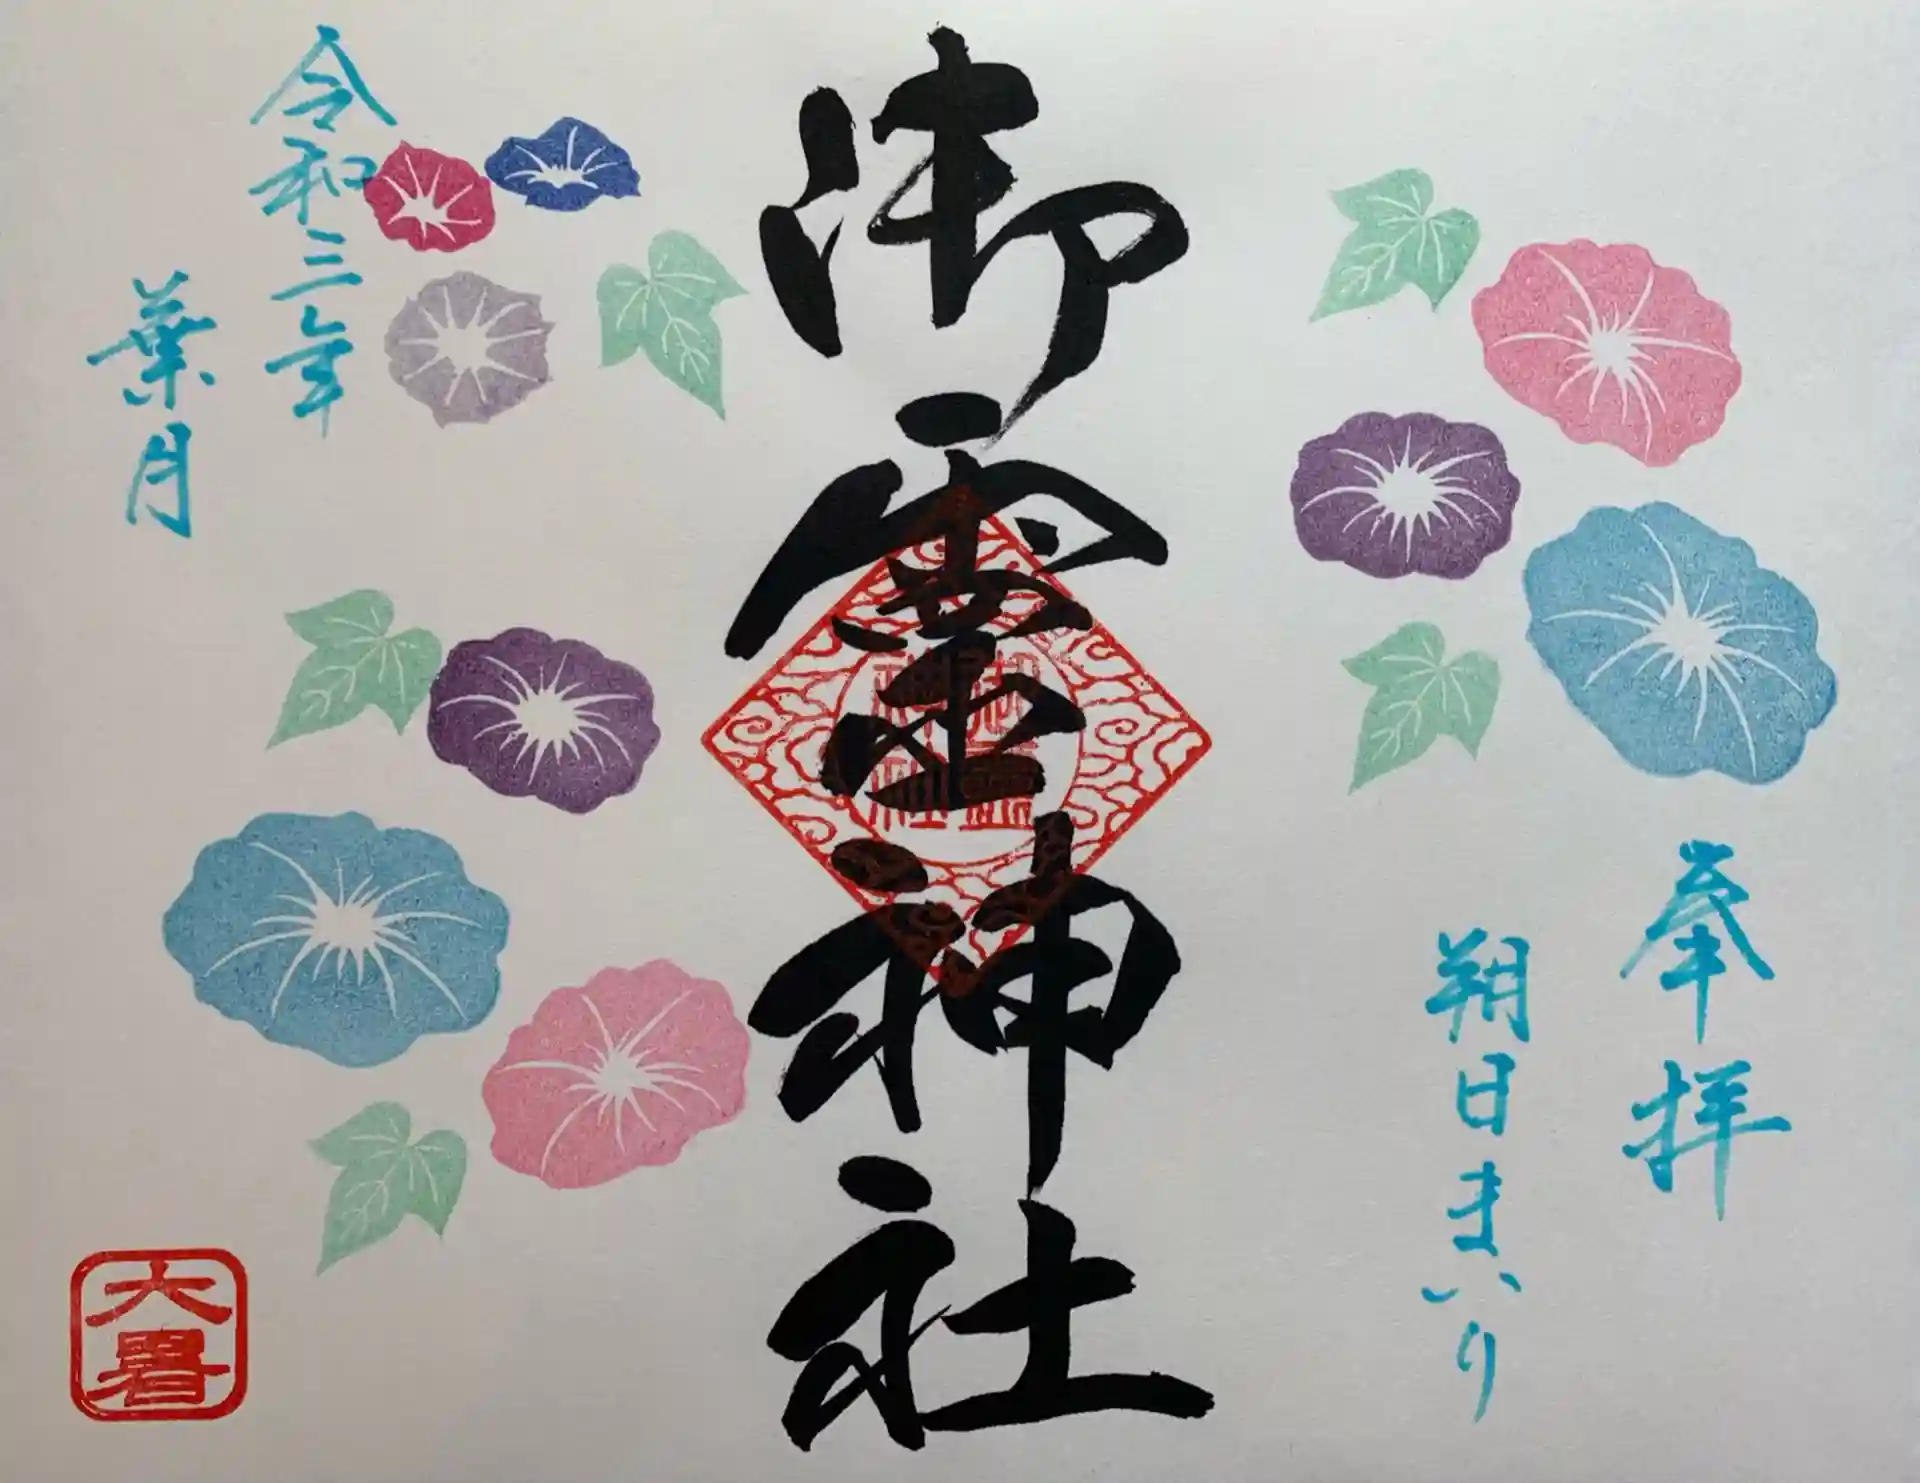 奉拝
朔日まいり
御霊神社
令和三年
葉月
大暑